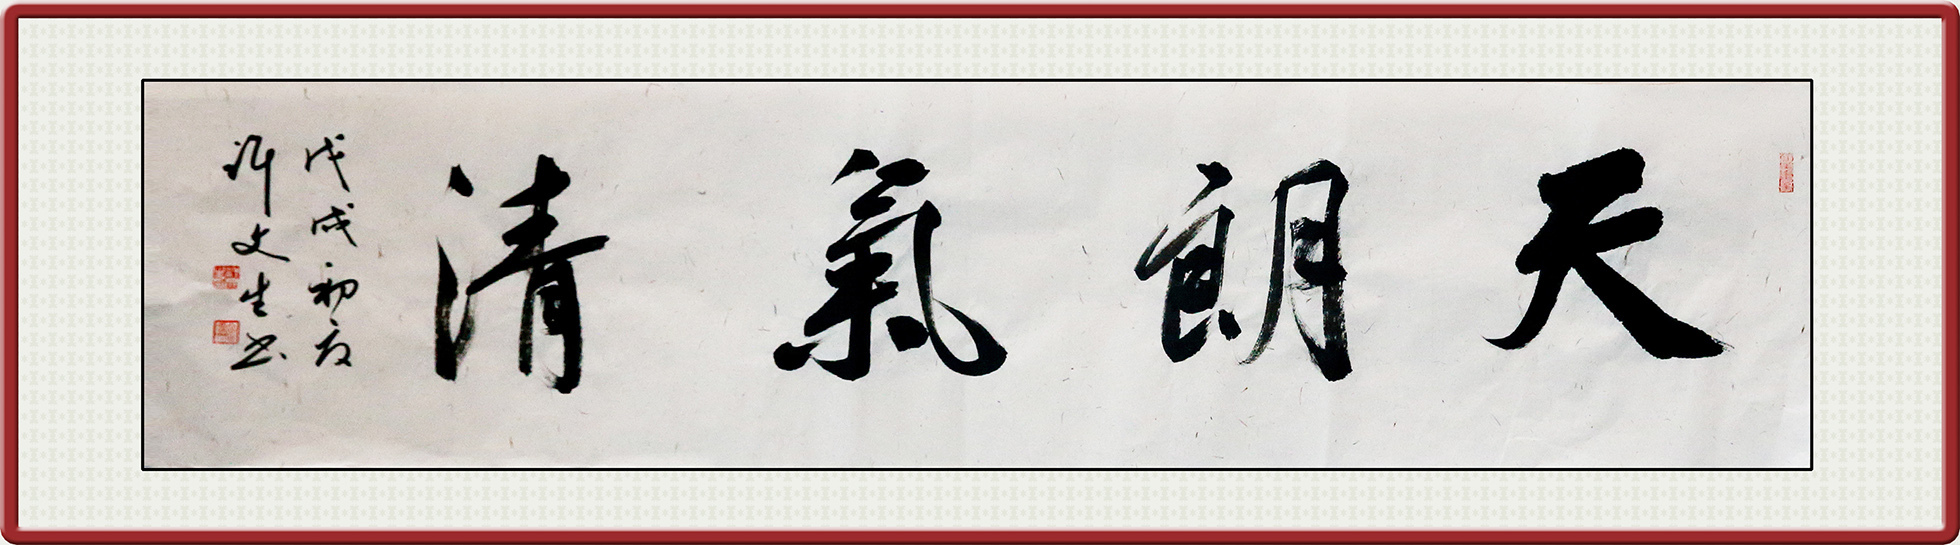 天朗氣清
戊戌初夏
许文生书